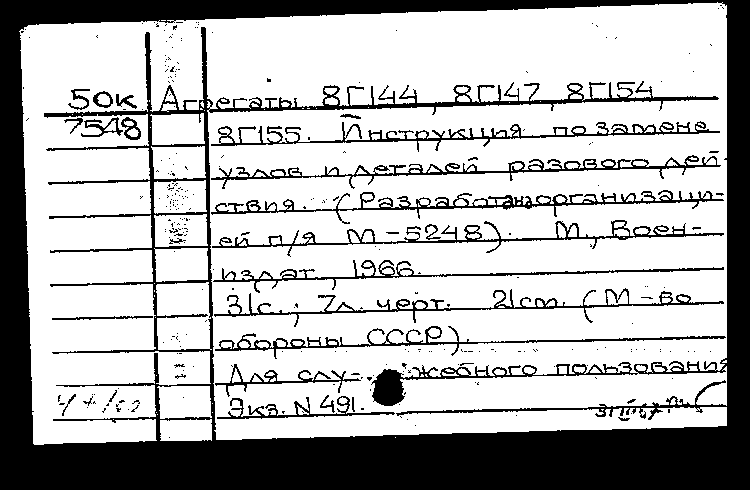 50к Агрегаты 8Г144, 8Г147, 8Г154,
7548 8Г155. Инструкция по замене
узлов и деталей разового дей-
ствия. (Разработана организаци-
ей п/я М-5248). М., Воен-
издат, 1966.
31с.; 7л. черт. 21cm. (М-во
обороны СССР).
Для слу- жебного пользования
Экз. N 491.